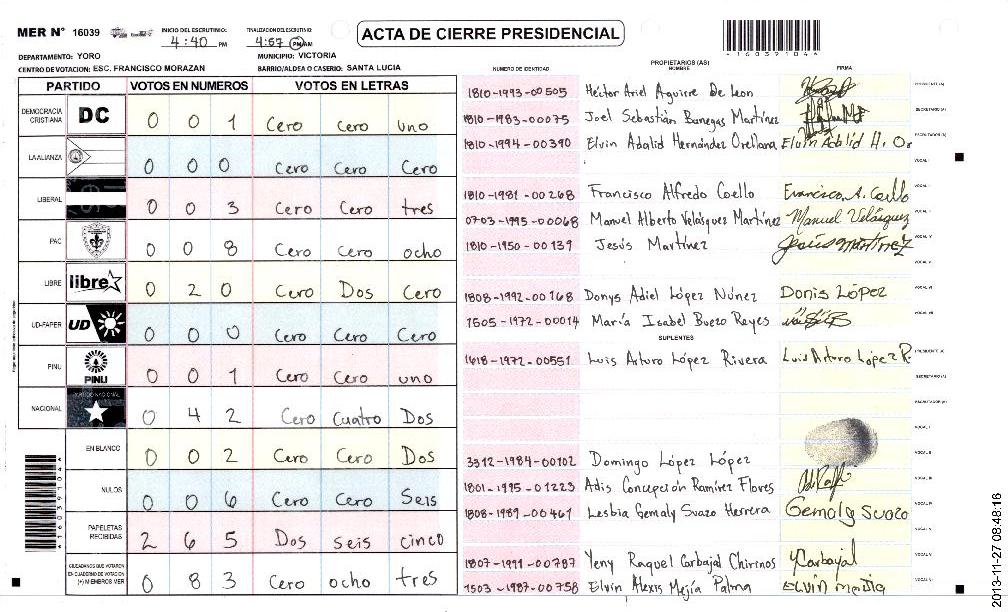 MER N° 16039
INICIO DEL ESCRUTINIO: 4:40 PM
FINALIZACION DEL ESCRUTINIO: 4:57 PM AM
ACTA DE CIERRE PRESIDENCIAL
*16039104*
DEPARTAMENTO: YORO
MUNICIPIO: VICTORIA
CENTRO DE VOTACION: ESC. FRANCISCO MORAZAN
BARRIO/ALDEA O CASERIO: SANTA LUCIA
PARTIDO VOTOS EN NUMEROS VOTOS EN LETRAS
DEMOCRACIA CRISTIANA DC 0 0 1 Cero Cero uno
LA ALIANZA 0 0 0 Cero Cero Cero
LIBERAL 0 0 3 Cero Cero tres
PAC 0 0 8 Cero Cero ocho
LIBRE libre 0 2 0 Cero Dos Cero
UD-FAPER UD 0 0 0 Cero Cero Cero
PINU PINU 0 0 1 Cero Cero uno
NACIONAL 0 4 2 Cero Cuatro Dos
EN BLANCO 0 0 2 Cero Cero Dos
NULOS 0 0 6 Cero Cero Seis
PAPELETAS RECIBIDAS 2 6 5 Dos seis cinco
CIUDADANOS QUE VOTARON EN CUADERNO DE VOTACION (+) MIEMBROS MER 0 8 3 Cero ocho tres
*16039104*
PROPIETARIOS (AS)
NUMERO DE IDENTIDAD NOMBRE FIRMA
1810-1993-00505 Héctor Ariel Aguirre De Leon PRESIDENTE (A)
1810-1983-00075 Joel Sebastián Banegas Martínez SECRETARIO (A)
1810-1994-00390 Elvin Adalid Hernández Orellana Elvin Adalid H. Or ESCRUTADOR (A)
VOCAL I
1810-1981-00268 Francisco Alfredo Coello Francisco A. Coello
0703-1995-00068 Manuel Alberto Velásquez Martínez Manuel Velásquez
1810-1950-00139 Jesús Martínez Jesús Martínez
1808-1992-00168 Donys Adiel López Núnez Donis López
1505-1972-00014 María Isabel Buezo Reyes
SUPLENTES
1618-1972-00551 Luis Arturo López Rivera Luis Arturo López R PRESIDENTE (A)
SECRETARIO (A)
ESCRUTADOR (A)
VOCAL I
3312-1984-00102 Domingo López López
1801-1995-01223 Adis Concepción Ramírez Flores
1808-1989-00461 Lesbia Gemaly Suazo Herrera Gemaly Suazo
1807-1991-00787 Yeny Raquel Carbajal Chirinos YCarbajal
1503-1987-00758 Elvin Alexis Mejía Palma
2013-11-27 08:48:16